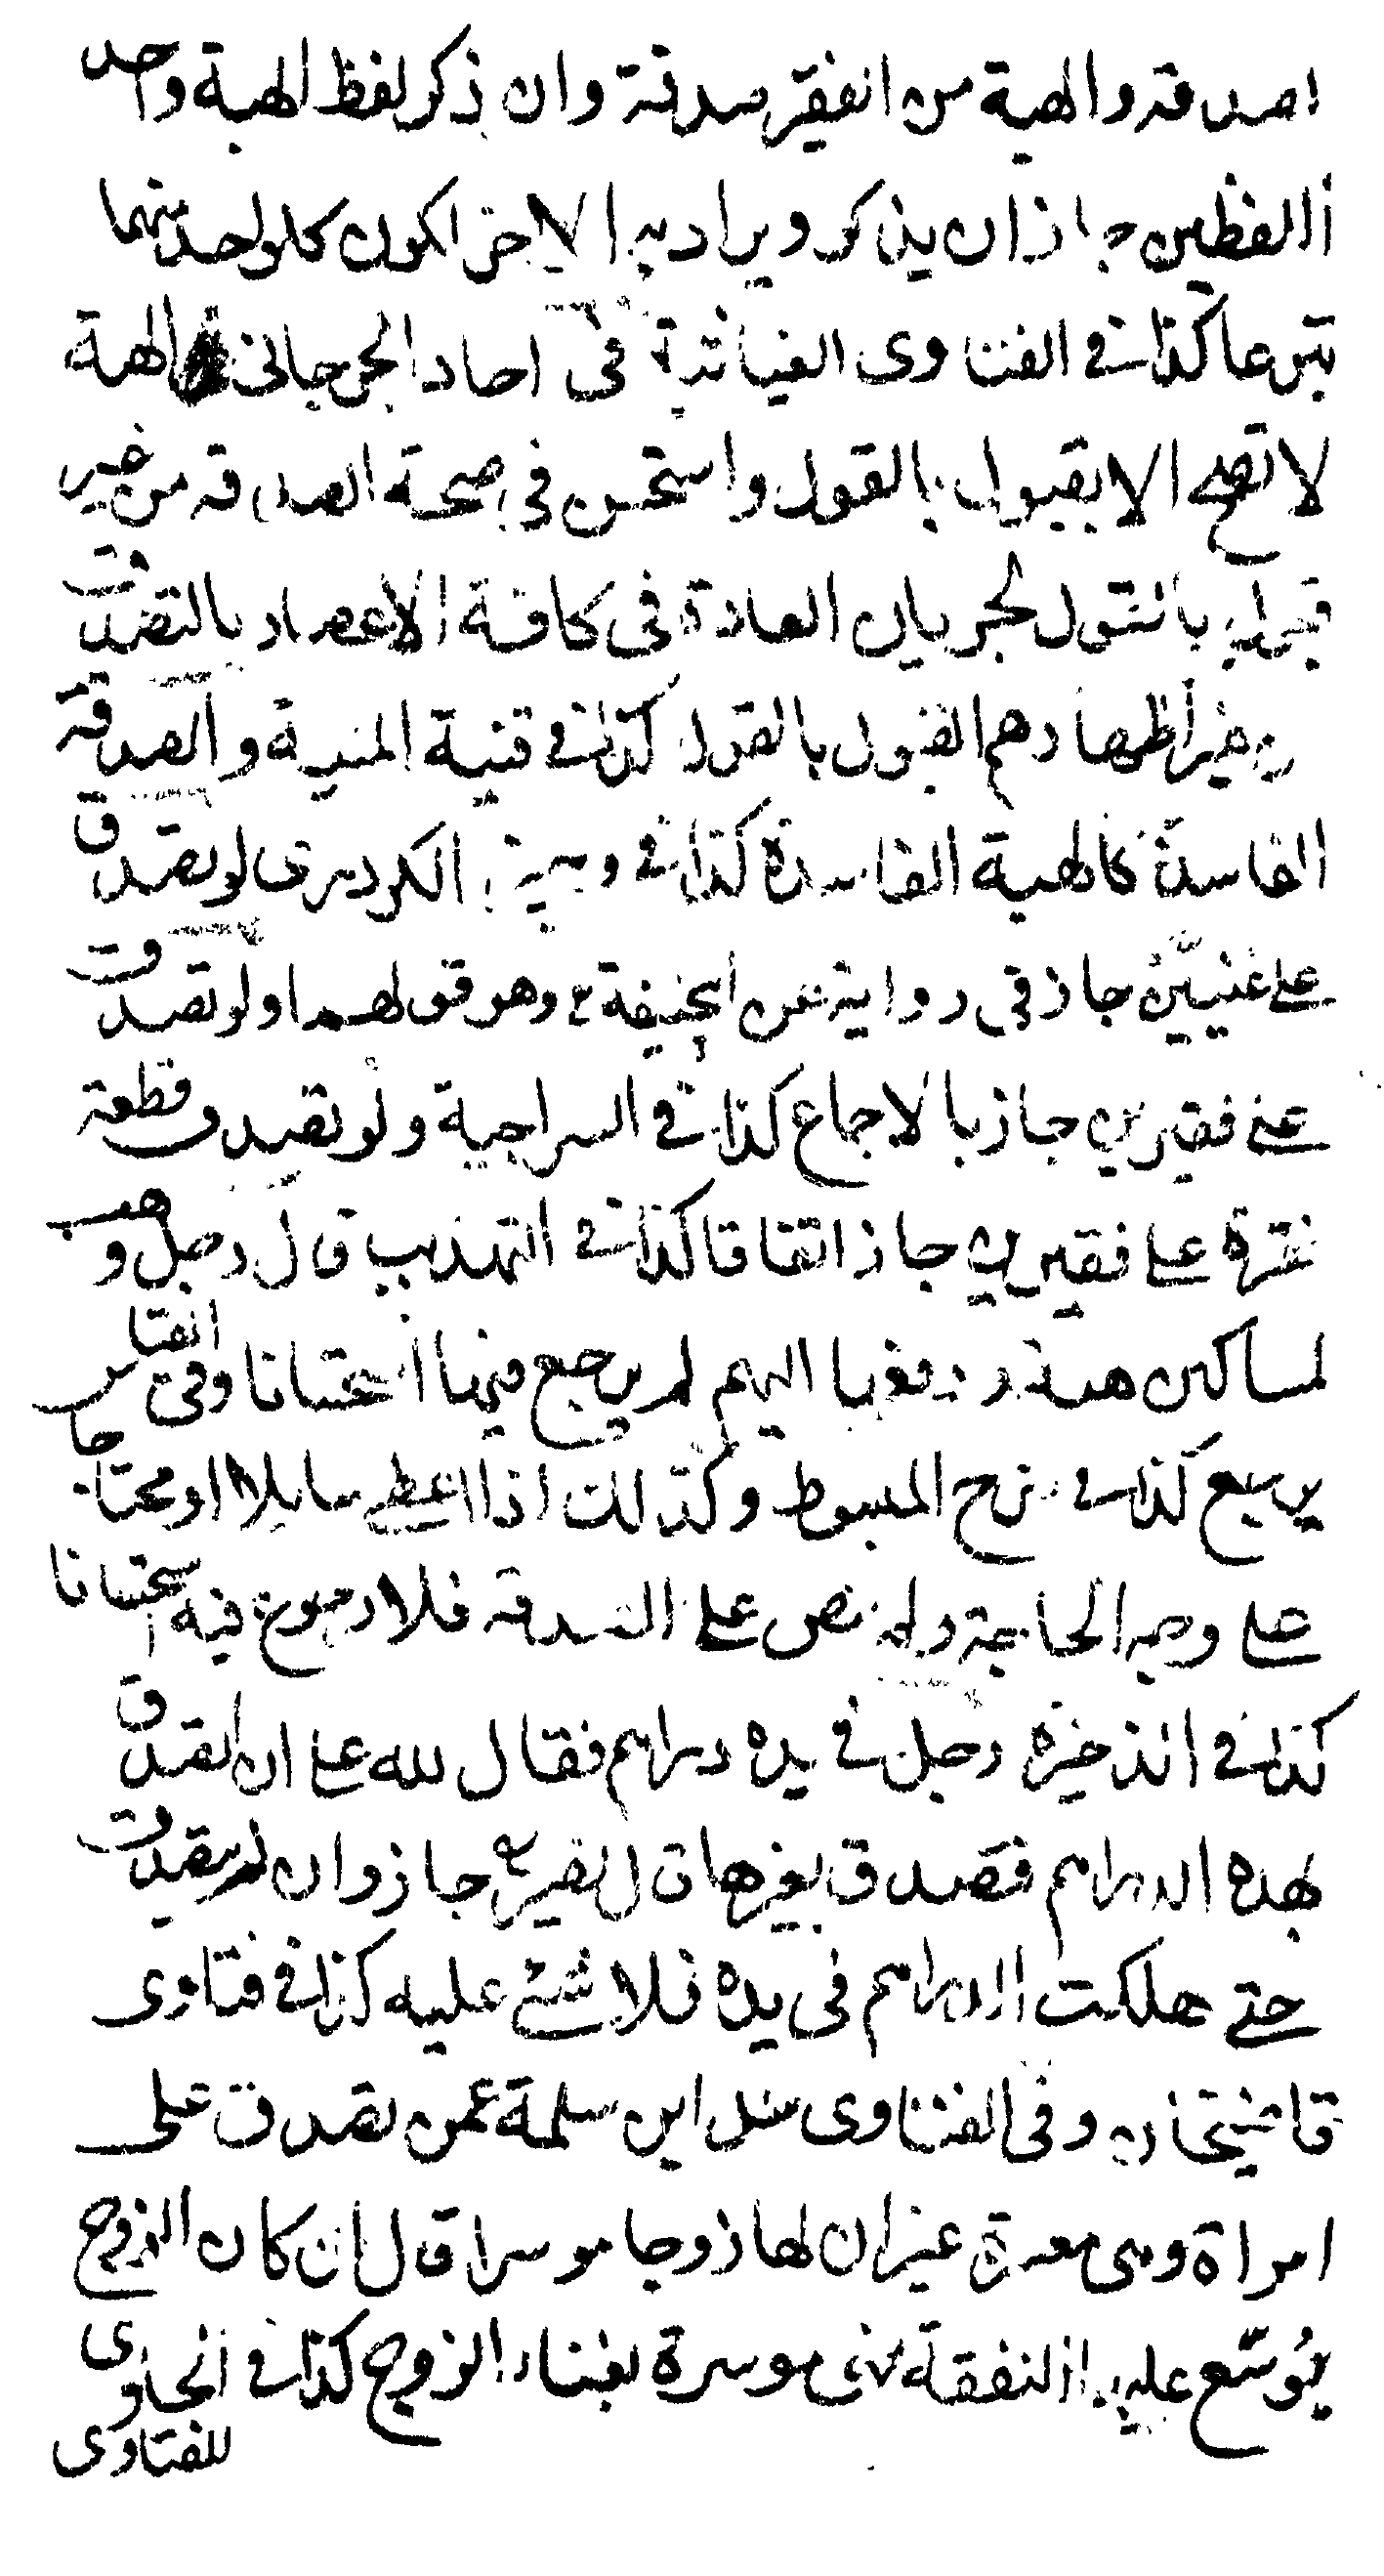 صدقة والهبة من الفقير صدقة وان ذكر لفظ الهبة واحد
اللفظين جاز ان يذكر ويراد به الاخر لكون كل واحد منهما
تبرعا كذا في الفتاوى الغياثية في الجرجاني الهبة
لا تصح الا بقبول بالقول واستحسن في صحة الصدقة من غير
قبول بالقول لجريان العادة في كافة الاعصار بالتصدق
من غير اظهارهم القبول بالقول كذا في قنية المنية والصدقة
الفاسدة كالهبة الفاسدة كذا في وجيز الكردرى لو تصدق
على غنيين جاز في رواية عن ابي حنيفة وهو قولهما ولو تصدق
على فقيرين جاز بالاجماع كذا في السراجية ولو تصدق قطعة
نقرة على فقيرين جاز اتفاقا كذا في التهذيب قال رجل وهب
لمساكين هبة ودفعها اليهم لم يرجع فيها استحسانا وفي القياس
يرجع كذا في شرح المبسوط وكذلك اذا اعطى سايلا او محتاجا
على وجه الحاجة ولم ينص على الصدقة فلا رجوع فيه استحسانا
كذا في الذخيرة رجل في يده دراهم فقال لله على ان اتصدق
بهذه الدراهم فتصدق بغيرها قال نصير جاز وان لم يتصدق
حتى هلكت الدراهم في يده فلا شئ عليه كذا في فتاوى
قاضيخان وفي الفتاوى سئل ابن سلمة عمن تصدق على
امراة وهى معسرة غير ان لها زوجا موسرا قال ان كان الزوج
يُوسّع عليها النفقة فهى موسرة بغناء الزوج كذا في الحاوى
للفتاوى